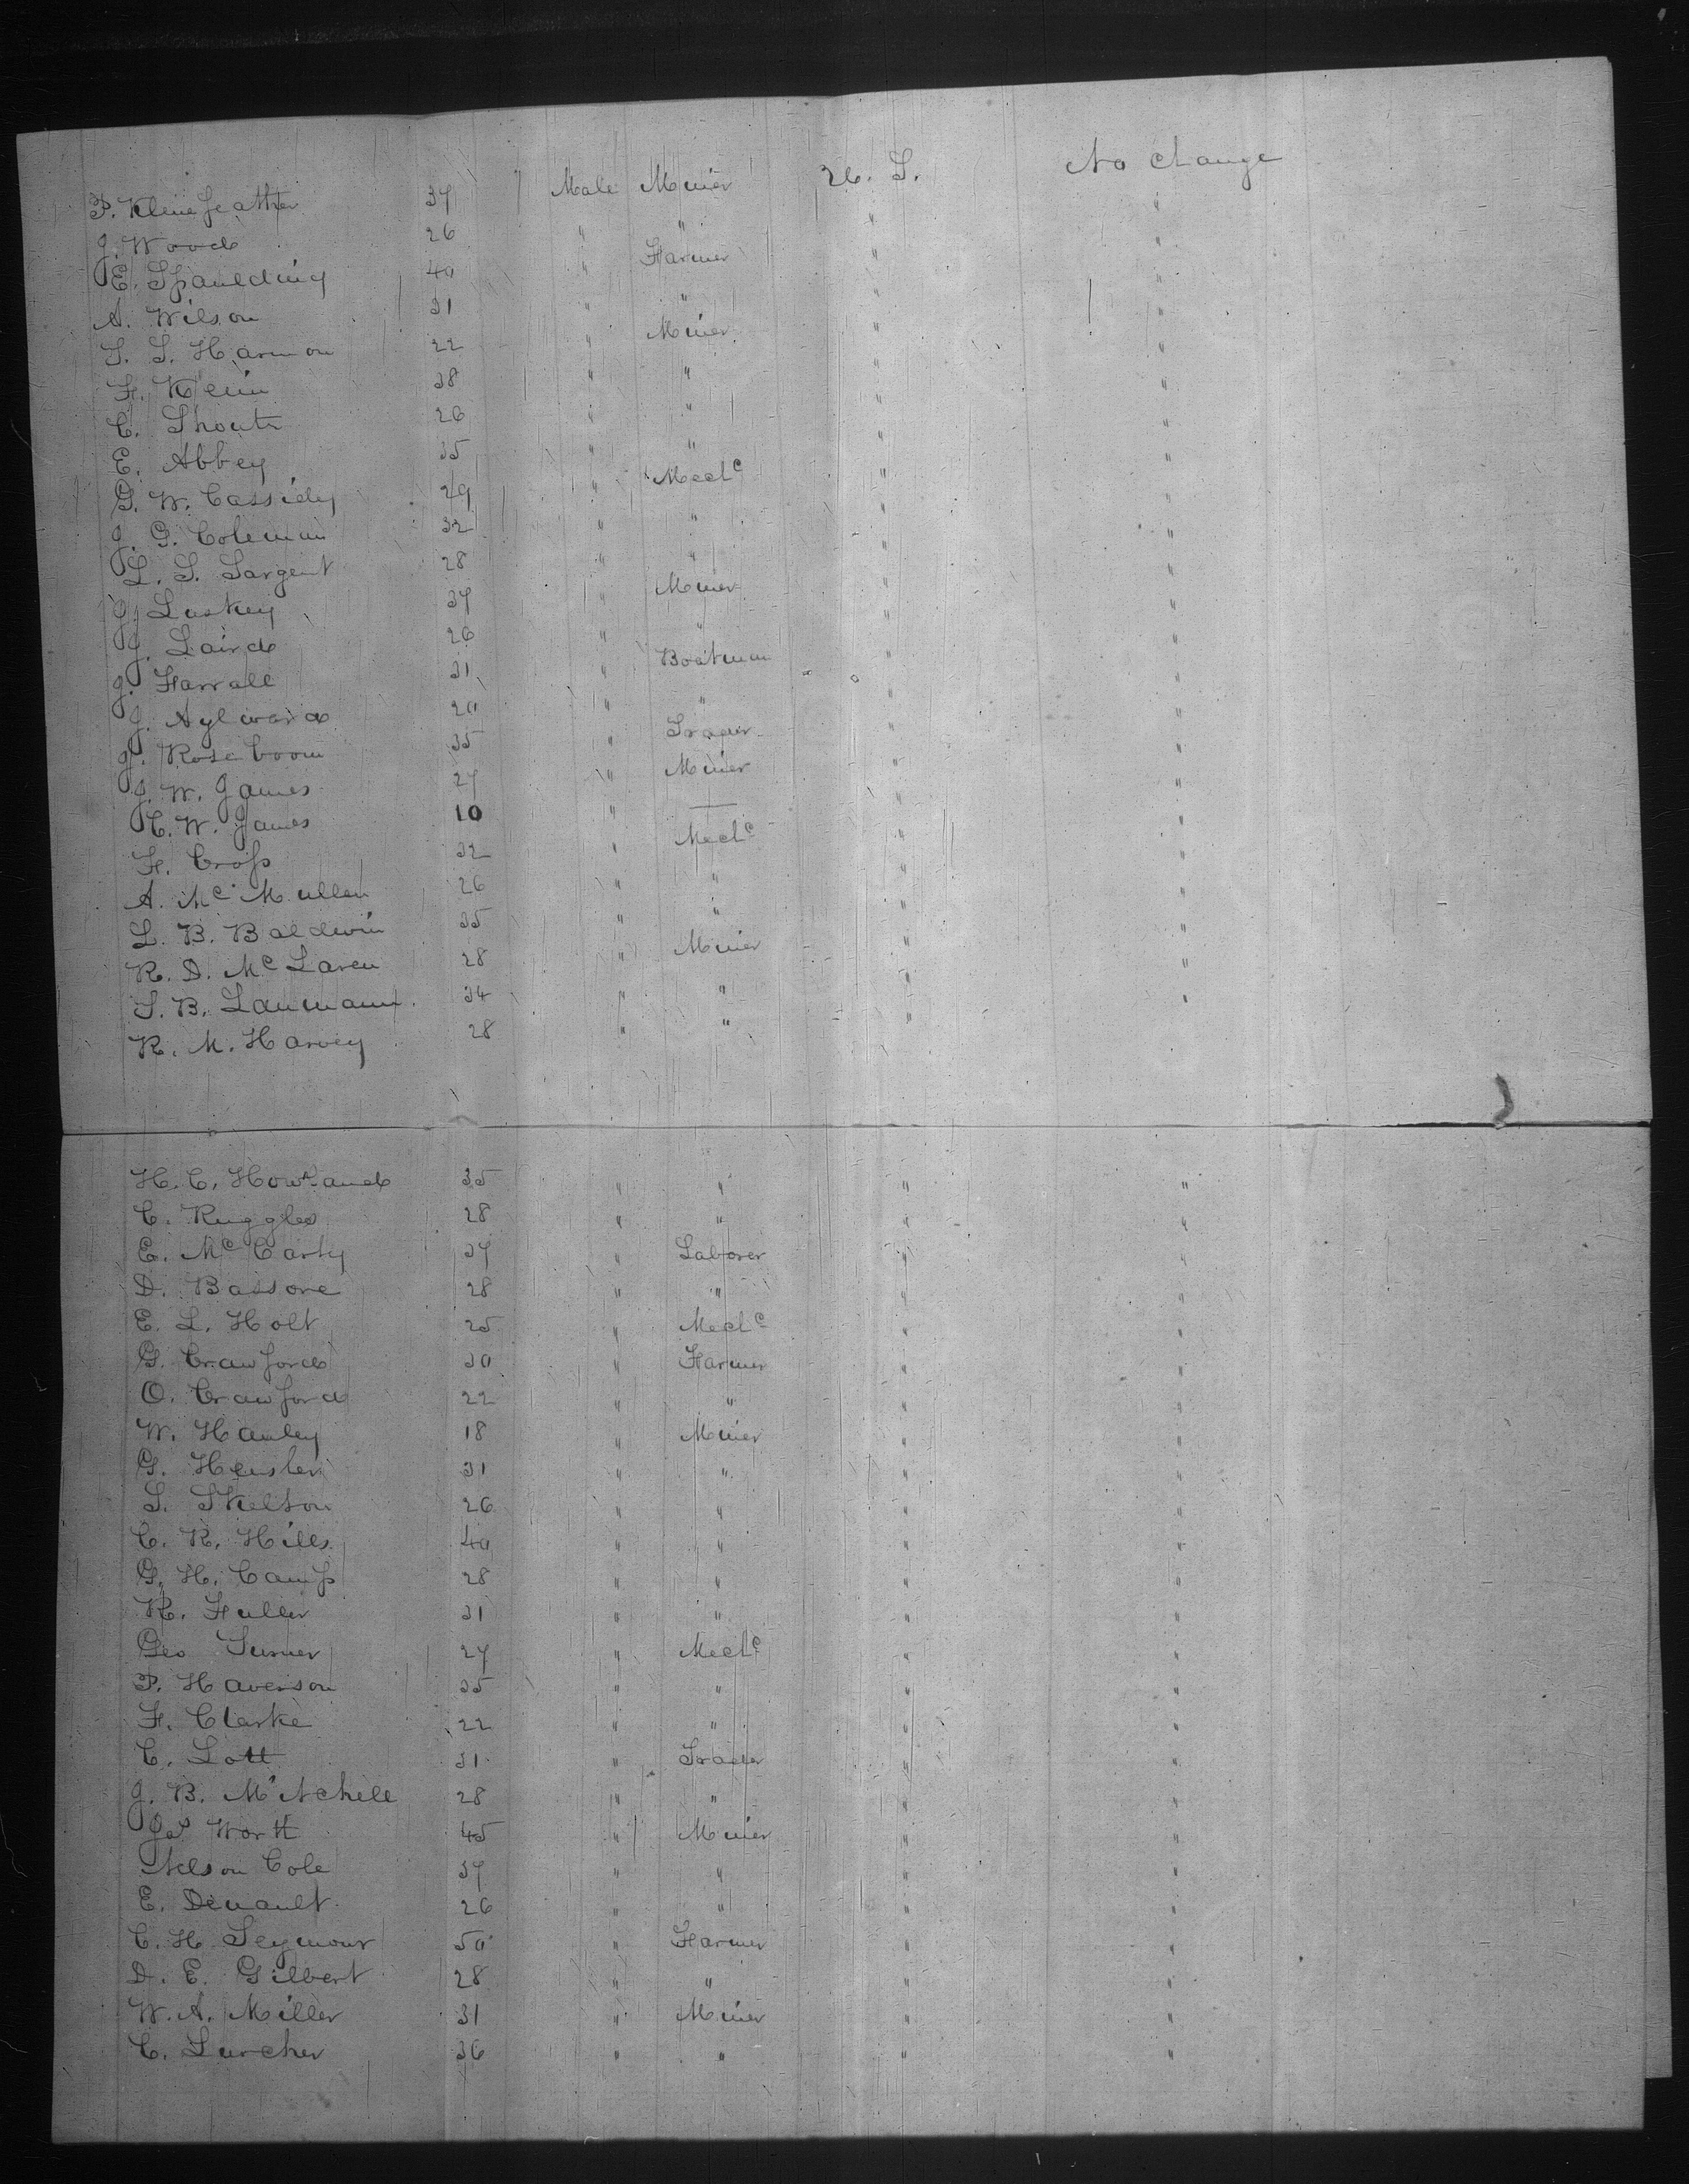 P. Kleinfeather 37 Male Miner U. S. No Change
J. Wood 26 " " " "
E. Spaulding 40 " Farmer " "
A. Wilson 31 " " " "
S. S. Harmon 22 " Miner " "
F. Klein 38 " " " "
C. Shouts 26 " " " "
E. Abbey 35 " " " "
G. W. Cassidy 29 " Mechc " "
J. G. Coleman 32 " " " "
L. S. Sargent 28 " " " "
J. Luskey 37 " Miner " "
J. Laird 26 " " " "
J. Farrall 31 " Boatman " "
J. Aylward 20 " " " "
J. Roseboom 35 " Trader " "
J. W. James 27 " Miner " "
C. W. James 10 " — " "
F. Cross 32 " Mechc " "
A. McMullen 26 " " " "
L. B. Baldwin 35 " " " "
R. D. McLaren 28 " Miner " "
S. B. Laumann 34 " " " "
R. M. Harvey 28 " " "
H. C. Howland 35 " " " "
C. Ruggles 28 " " " "
E. McCarty 37 " Laborer " "
D. Bassore 28 " " " "
E. L. Holt 25 " Mechc " "
G. Crawford 30 " Farmer " "
O. Crawford 22 " " " "
W. Hanley 18 " Miner " "
G. Hensler 31 " " " "
S. Skelton 26 " " " "
C. R. Hills 40 " " " "
G. H. Camp 28 " " " "
R. Fuller 31 " " " "
Geo Turner 27 " Mechc " "
P. Haverson 35 " " " "
F. Clarke 22 " " " "
C. Lott 31 " Trader " "
J. B. Mitchell 28 " " " "
Jas Worth 45 " Miner " "
Nelson Cole 37 " " " "
E. Denault 26 " " " "
C. H. Seymour 50 " Farmer " "
D. E. Gilbert 28 " " " "
W. A. Miller 31 " Miner " "
C. Lurcher 36 " " " "